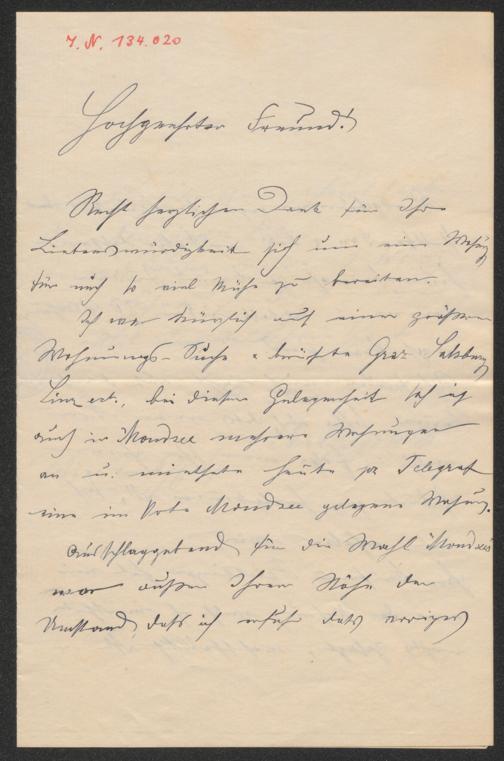 J. N. 134.020
Hochgeehrter Freund!
Recht herzlichen Dank für Ihre
Liebenswürdigkeit sich um eine Wohng
für mich so viel Mühe zu bereiten.
Ich war kürzlich auf einer größeren
Wohnungs-Suche u. Graz Salzburg
Linz ect., bei dieser Gelegenheit sah ich
auch in Mondsee mehrere Wohnungen
an u. miethete heute pr Telegraf
eine im Orte Mondsee gelegene Wohnung.
Ausschlaggebend für die Wahl Mondsees
war außer Ihrer Nähe der
Umstand, daß ich erfuhr daß